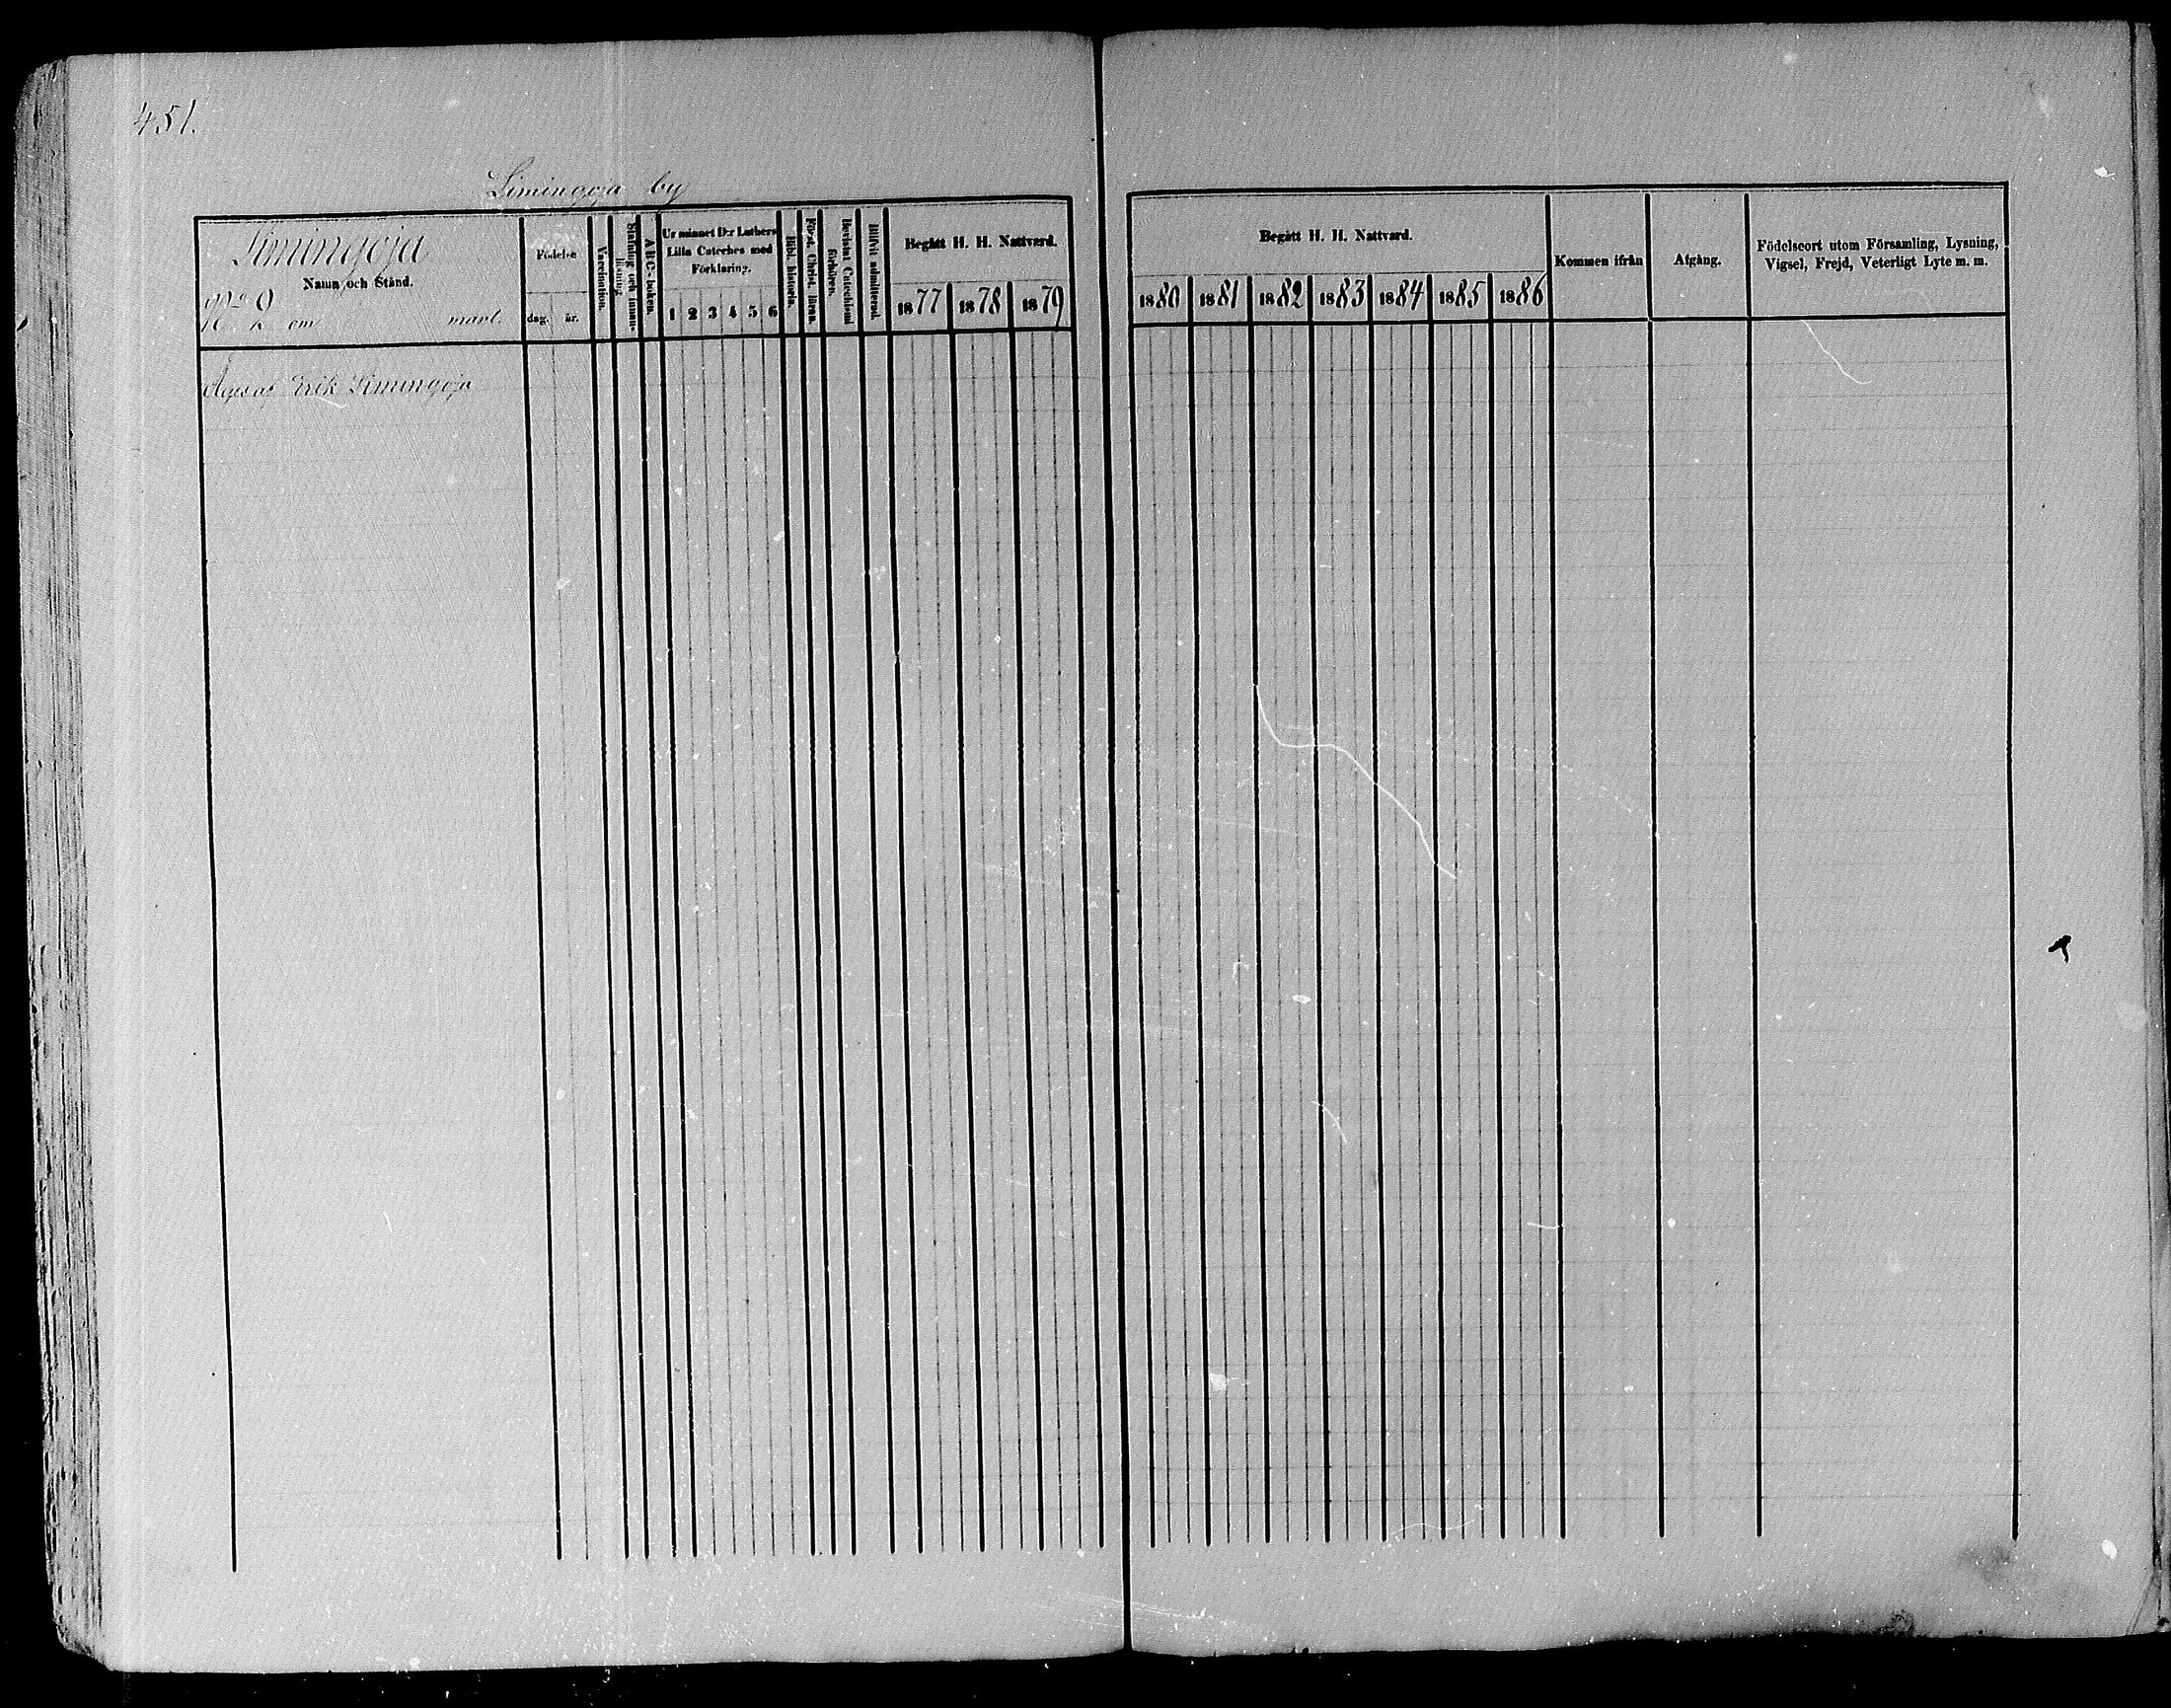 451.
Limingoja by
Limingoja
Namn och Stånd.
No 9
om mant.
Födelse
dag. år.
Vaccination.
Stafning och innan-
läsning
A B C-boken.
Ur minnet D:r Luthers
Lilla Cateches med
Förklaring.
1 2 3 4 5 6
Bibl. historia.
Först. Christ. läran.
Bevistat Catechismi
förhören.
Blifvit admitterad.
Begått H. H. Nattvard.
1877 1878 1879
Begått H. H. Nattvard.
1880 1881 1882 1883 1884 1885 1886
Kommen ifrån
Afgång.
Födelseort utom Församling, Lysning,
Vigsel, Frejd, Veterligt Lyte m. m.
Erik Limingoja